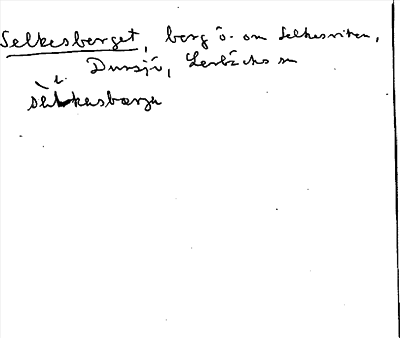 Selkesberget, berg ö. om Selkesviten,
Dunsjö, Lerbäcks sn
sælkasbærja